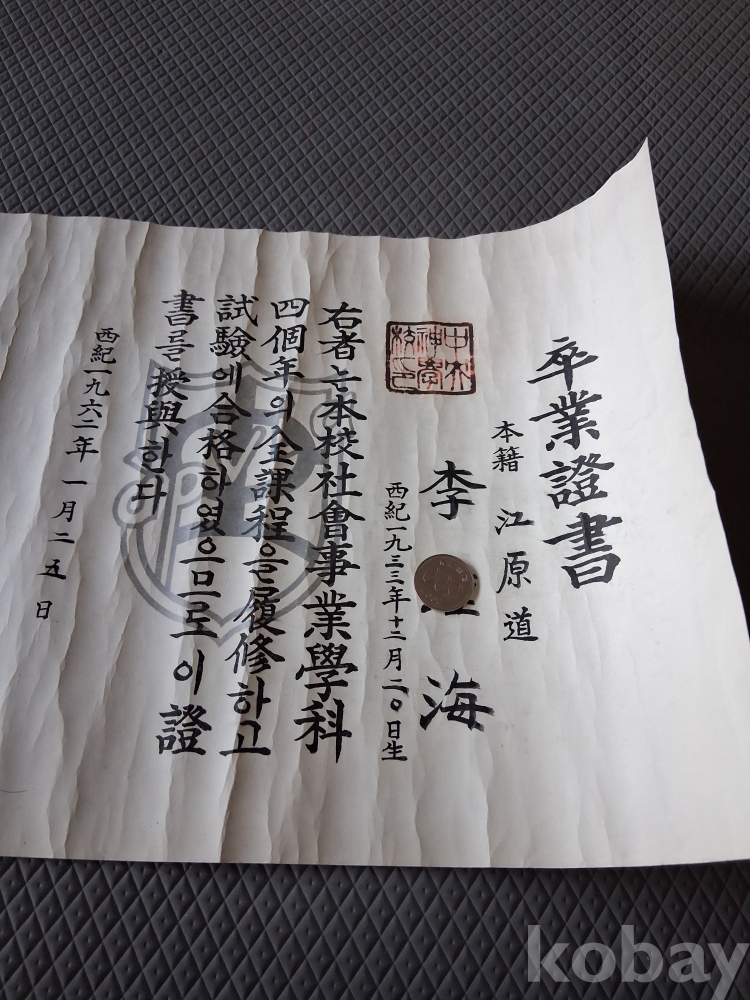 卒業證書
本籍 江原道
李 海
西紀一九三三年十二月二〇日生
右者는本校社會事業學科
四個年의全課程을履修하고
試驗에合格하였으므로이證
書를授與한다
西紀一九六二年一月二五日
中央
神學
校印
kobay